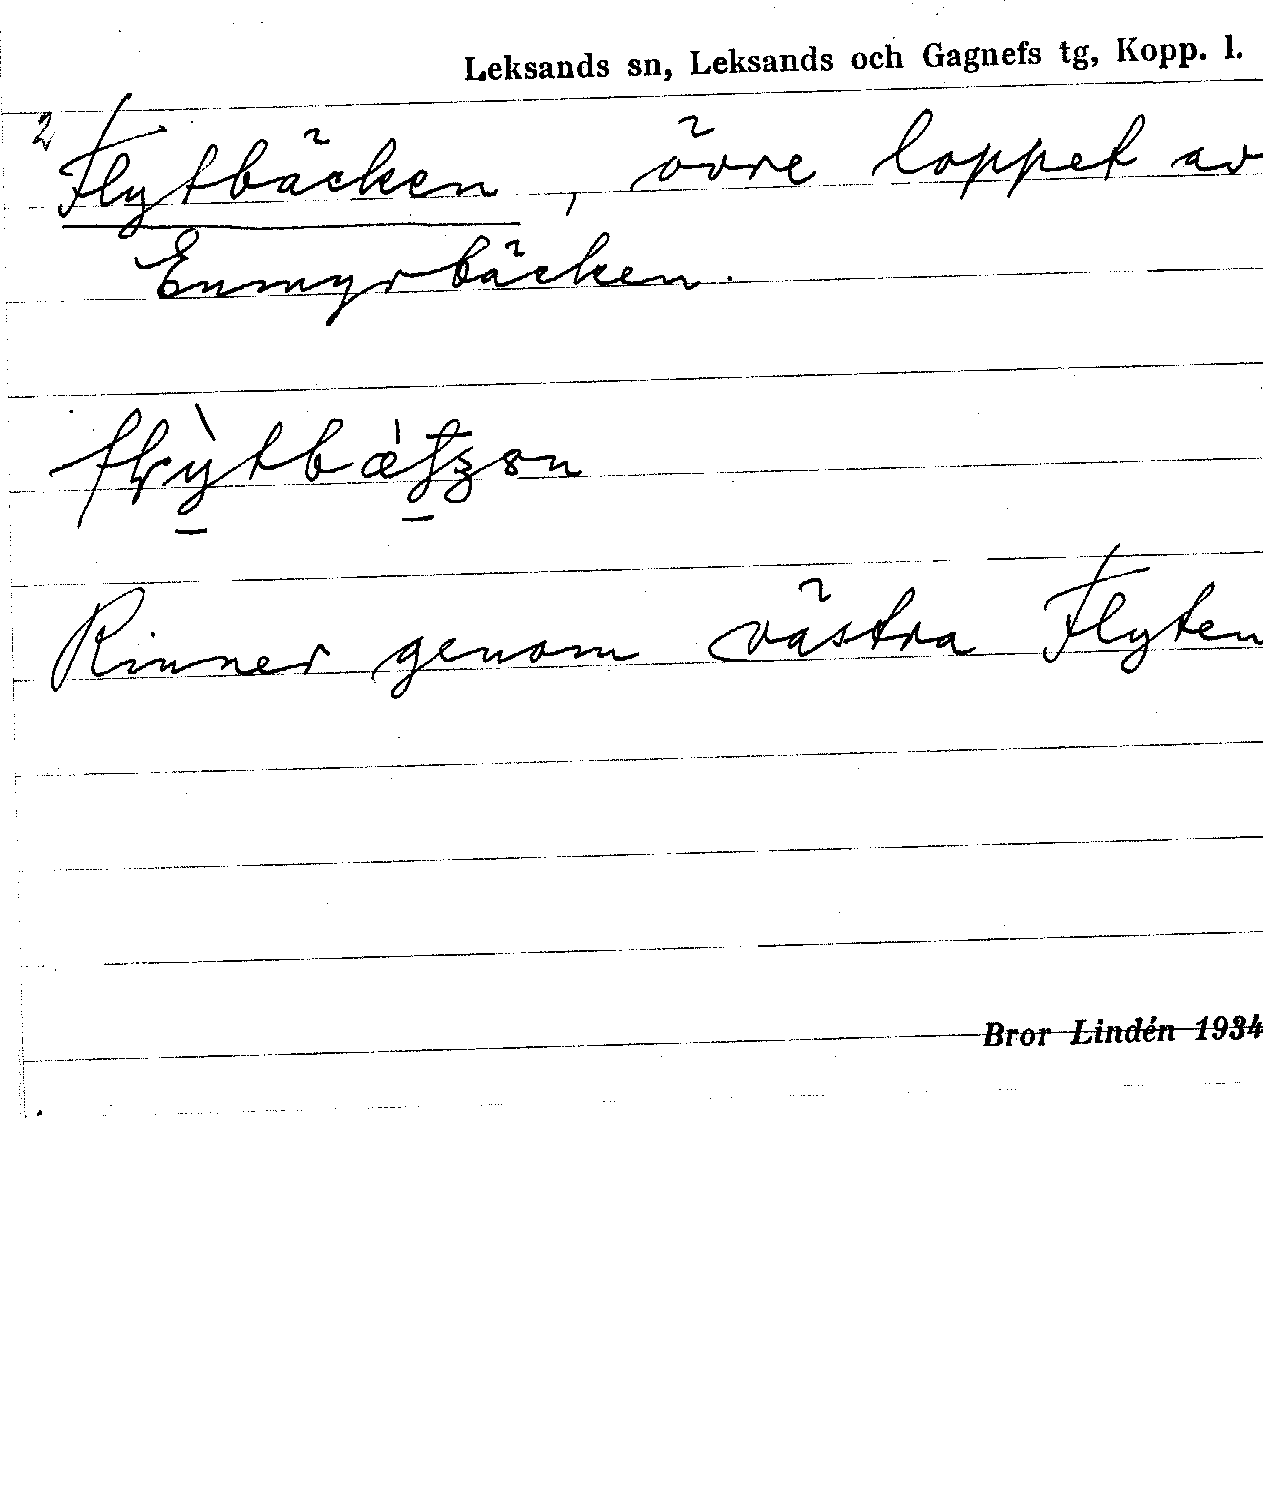 Leksands sn, Leksands och Gagnefs tg, Kopp. l.
2 Flytbäcken, övre loppet av
Enmyrbäcken.
Rinner genom västra Flyten
Bror Lindén 1934